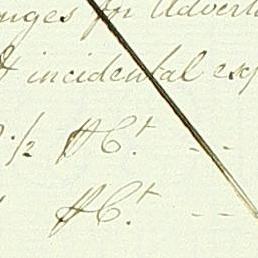 for Advert
incidental exp
1/2 ⅌ C.t - -
⅌ C.t - -